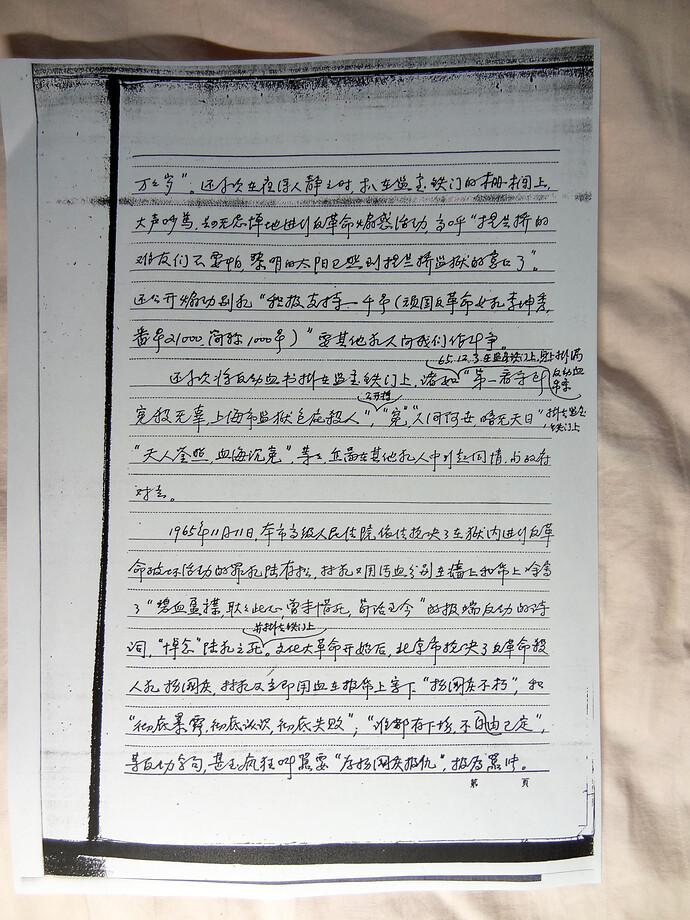 万岁”。还多次在夜深人静之时,扒在监室铁门的栅栏上,
大声吵骂,幼无忌惮地进行反革命煽惑活动,高呼“提篮桥的
难友们不要怕,黎明的太阳已照到提篮桥监狱的高墙了”。
还公开煽动别犯“积极支持一千号(顽固反革命女犯李坤秀,
番号21000,简称1000号)”要其他犯人向我们作斗争。
65.12.3在监房铁门上,
还多次将反动血书挂在监室铁门上,诸如“第一看守所
反动血
公开挂
冤杀无辜,上海市监狱包庇杀人”,“冤”,“人间何世暗无天日”
挂在监室
铁门上
“天人鉴照,血海沉冤”,等等,企图在其他犯人中引起同情,与政府
对立。
1965年11月11日,本市高级人民法院,依法枪决了在狱内进行反革
命破坏活动的罪犯陆存松,林犯又用污血分别在墙上和布上涂写
了“碧血，耿耿此心,曾未惜死,苟活至今”的极端反动的诗
并挂在铁门上
词,“悼念”陆犯之死。文化大革命开始后,北京市枪决了反革命杀
人犯杨国庆,林犯又立即用血在报纸上写下“杨国庆不朽”,和
“彻底暴露,彻底认识,彻底失败”;“谁都有下场,不由自己定”,
等反动字句,甚至疯狂叫嚣要“为杨国庆报仇”,极为嚣张。
第 页